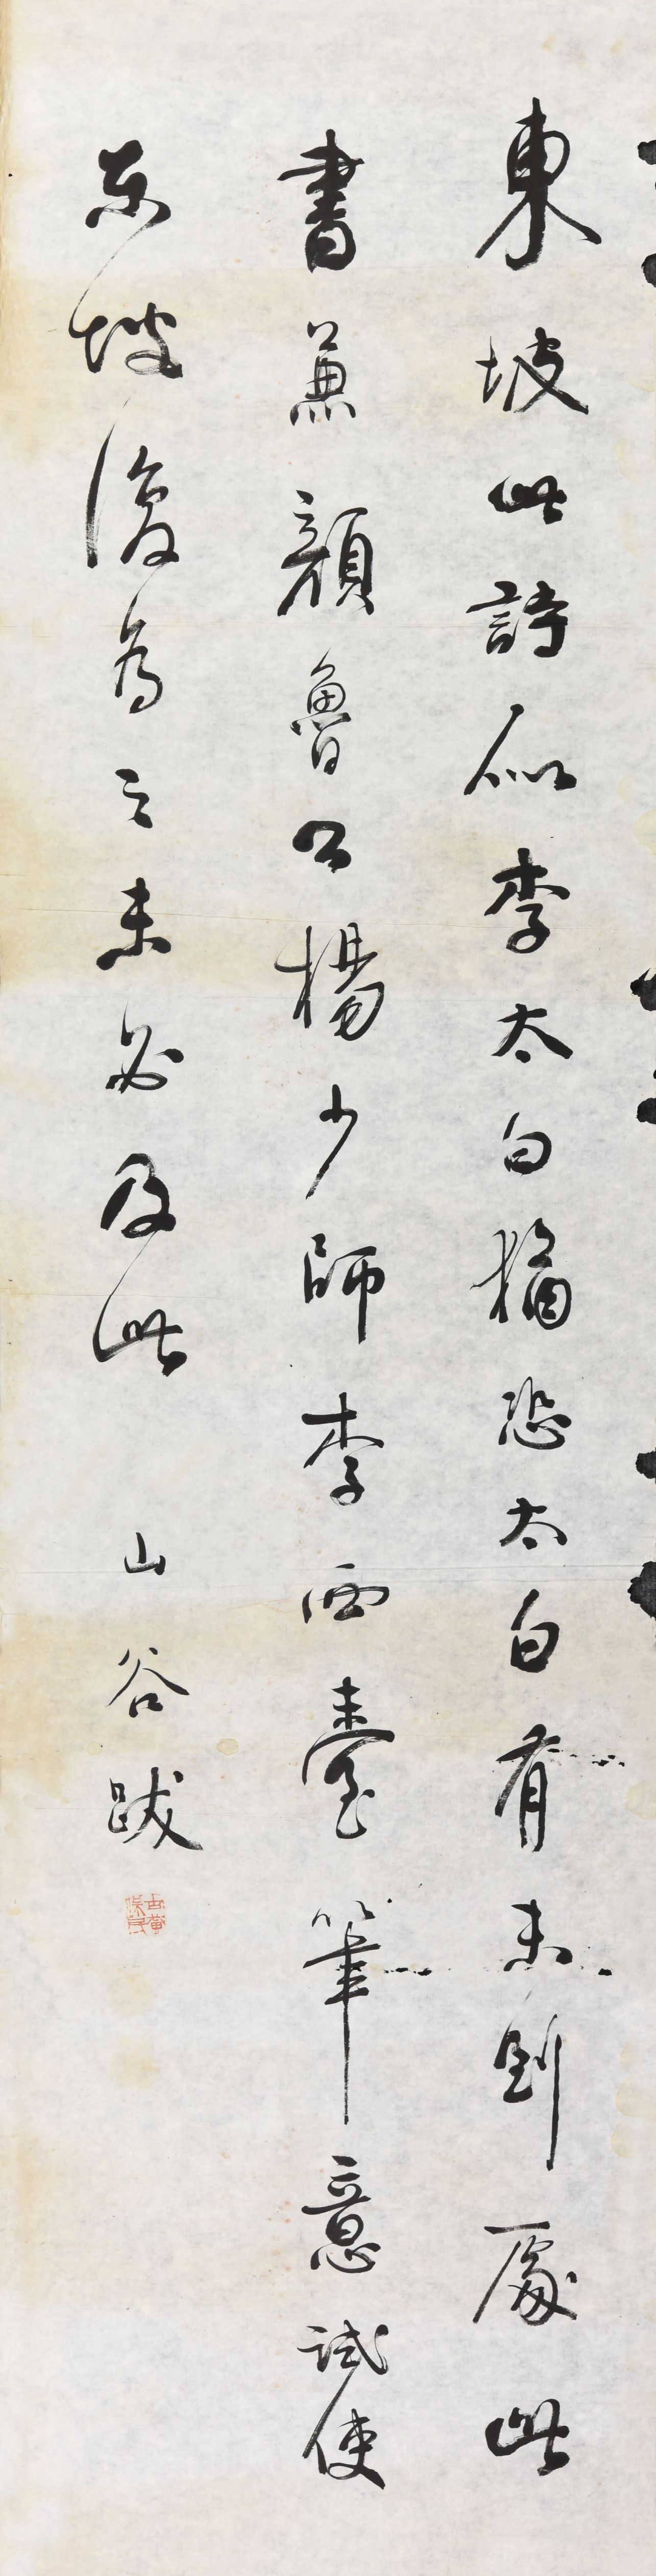 東坡此詩似李太白猶恐太白有未到處此
書兼顏魯公楊少師李西臺筆意試使
东坡復為之未必及此 山谷跋